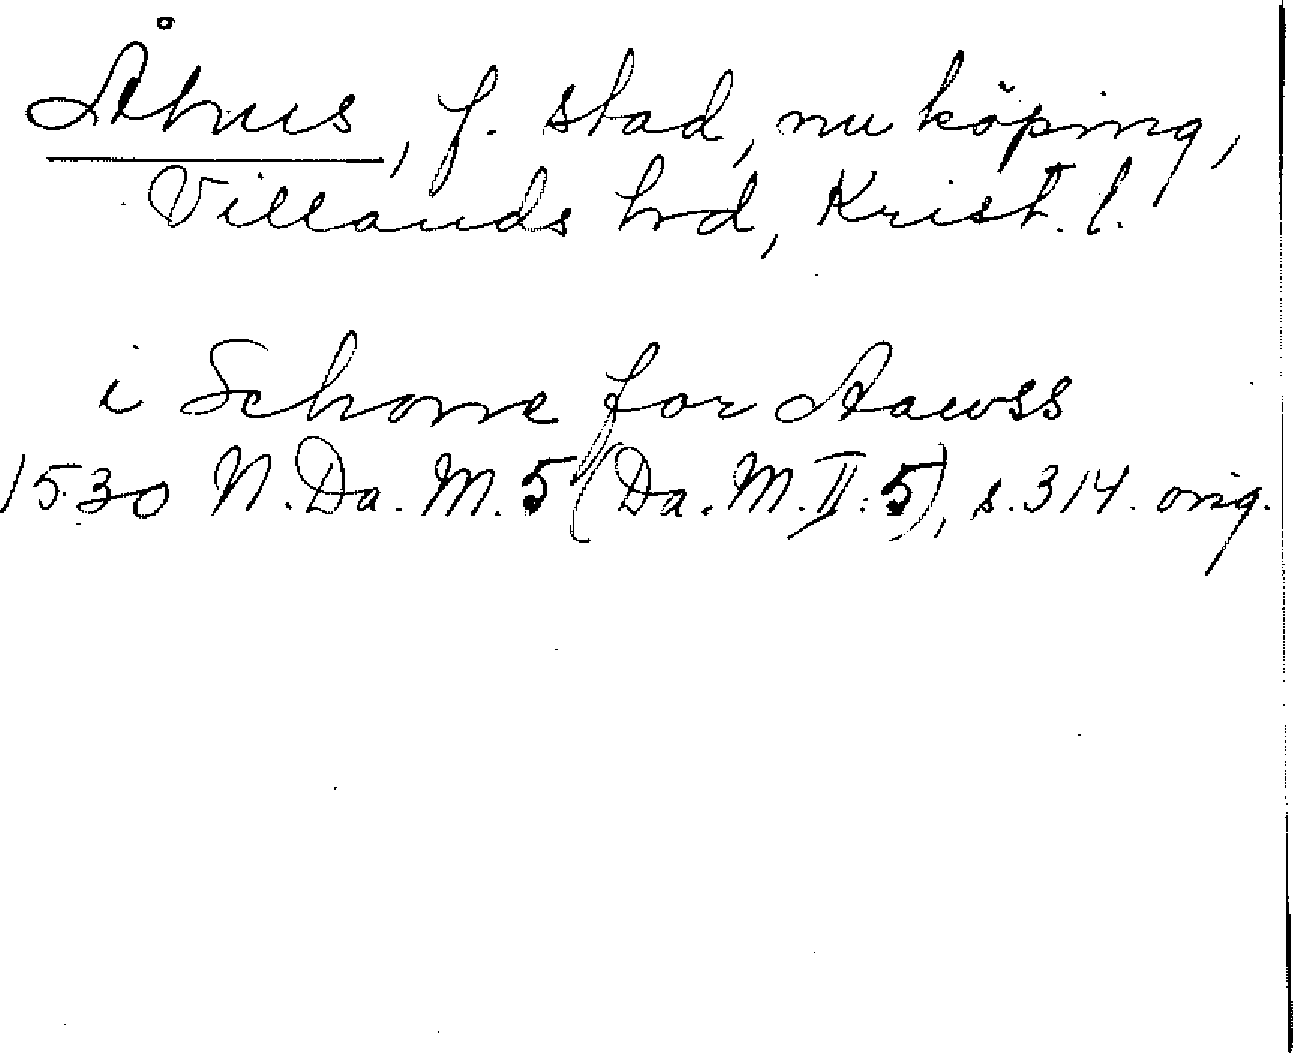 Åhus, f. stad, nu köping,
Villands hrd, Krist. l.
i Schone for Aawss
1530 N. Da. M. 5 (Da. M. II: 5), s. 314. orig.